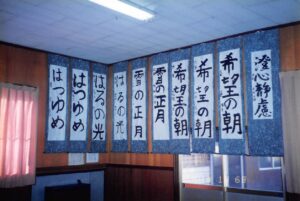 澄心静慮
希望の朝
希望の朝
希望の朝
雪の正月
雪の正月
はるの光
はるの光
はつゆめ
はつゆめ